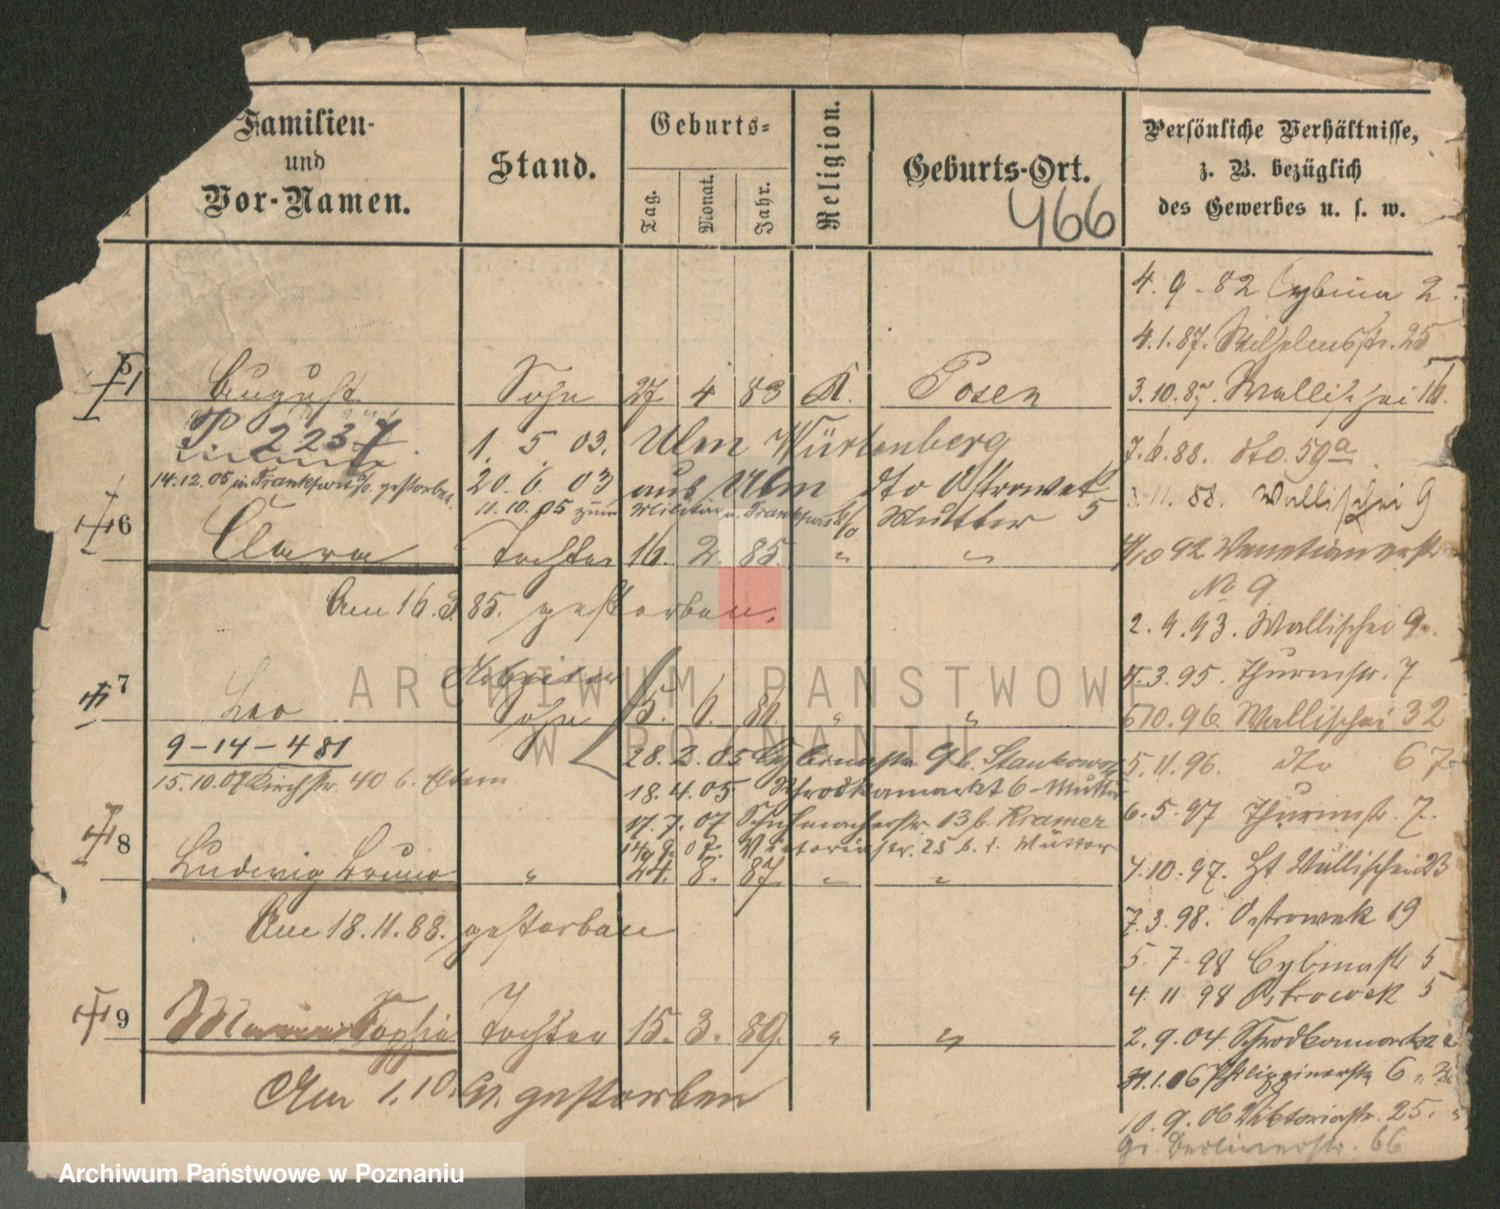 Familien-
und
Vor-Namen.
Stand.
Geburts-
Tag.
Monat.
Jahr.
Religion.
Geburts-Ort.
466
Persönliche Verhältnisse,
z. B. bezüglich
des Gewerbes u. s. w.
4. 9. 82 Cybina 2
4. 1. 87. Wilhelmsstr. 25
5 August Sohn 27 4 83 K. Posen
3. 10. 87. Wallischei 76.
2237
1. 5. 03. Ulm Würtenberg
7. 6. 88. dto. 59a
14.12.05 in Frankfurt gestorben
20. 6. 03 aus Ulm dto Ostrowek
11. 88. Wallischei 9
11.10.05 zum Militär n. Frankfurt a/o Mutter 5
6 Clara Tochter 16. 2. 85. " "
4/10 92 Venetianerstr
No 9
Am 16. 3. 85. gestorben.
2. 9. 93. Wallischei 9.
7 Leo Arbeiter
Sohn 5. 6. 86. " "
4. 3. 95. Thurmstr. 7
6 10. 96 Wallischei 32
9-14-481
28. 3. 05 Cybinastr 9 b. Stankowoz
5. 11. 96. dto 67
15.10.07 Kirchstr. 40 b. Eltern
18. 4. 05 Schrodkamarkt 6 Mutter
17. 7. 07 Schuhmacherstr. 13 b. Kramer
6. 5. 97 Thurmstr. 7.
14. 9. 07. Viktoriastr. 25 b. d. Mutter
8 Ludwig Bruno " 24. 8. 87. " "
7. 10. 97. Wallischei 23
Am 18. 11. 88. gestorben
7. 3. 98. Ostrowek 19
5. 7. 98 Cybinastr 5
4. 11 98 Ostrowek 5
9 Sophie Tochter 15. 3. 89. " "
2. 9. 04 Schrodkamarkt
31. 1. 06 Philippinerstr 6
Am 1. 10. gestorben
10. 9. 06 Viktoriastr. 25.
Gr. Berlinerstr. 66
ARCHIWUM PANSTWOW
W POZNANIU
Archiwum Państwowe w Poznaniu